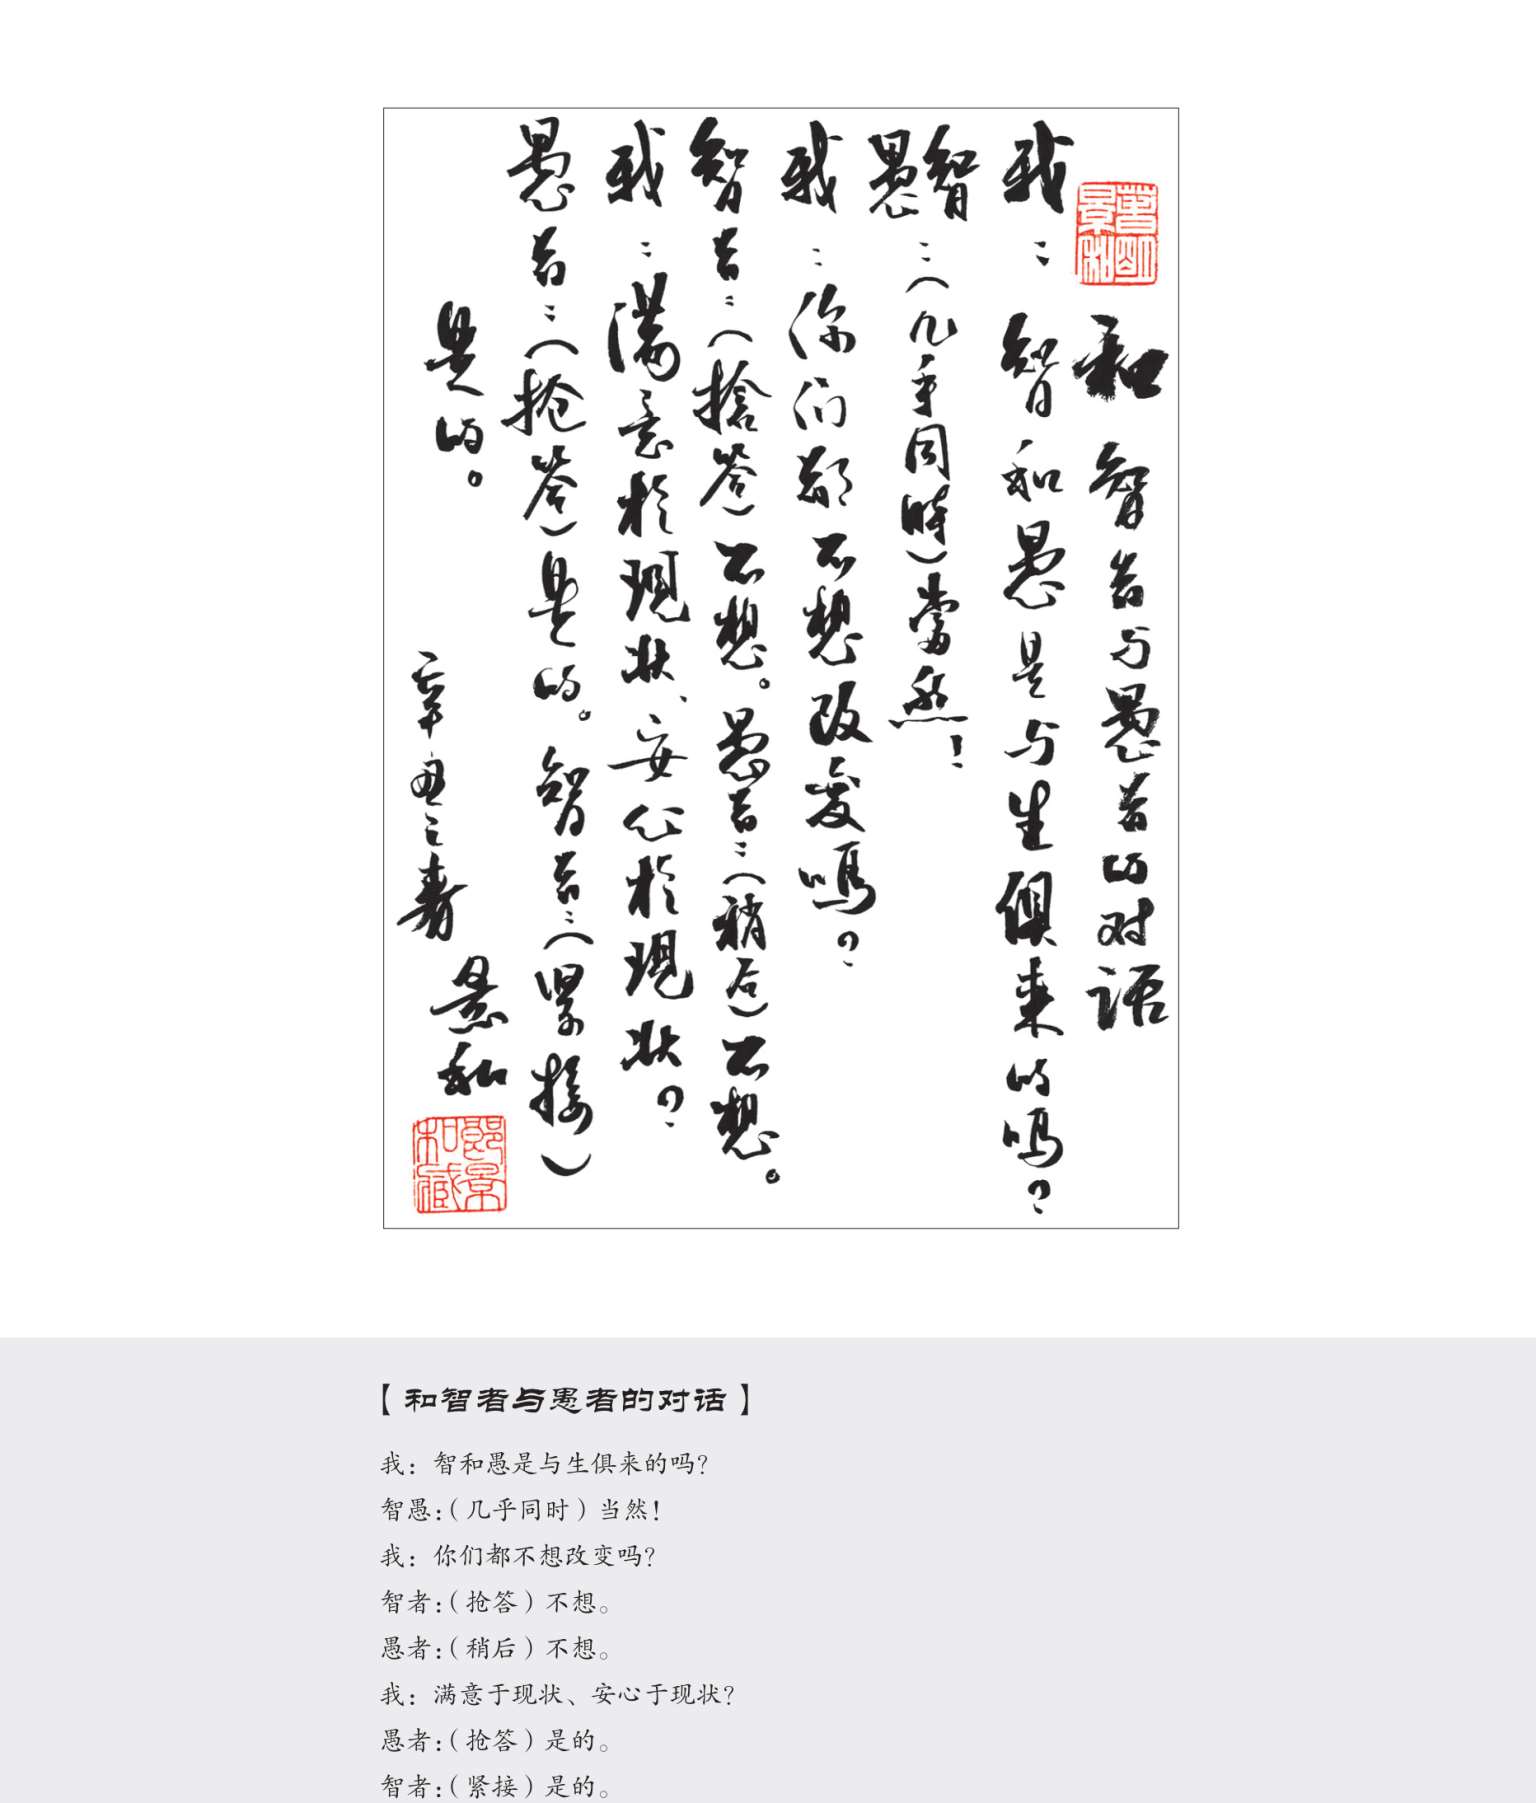 和智者与愚者的对话
我：智和愚是与生俱来的吗？
智愚：（几乎同時）當然！
我：你们都不想改变嗎？
智者：（搶答）不想。愚者：（稍后）不想。
我：滿意於現状、安心於現状？
愚者：（抢答）是的。智者：（紧接）
是的。
辛丑之春
景和
郎景和藏
【和智者与愚者的对话】
我：智和愚是与生俱来的吗？
智愚：（几乎同时）当然！
我：你们都不想改变吗？
智者：（抢答）不想。
愚者：（稍后）不想。
我：满意于现状、安心于现状？
愚者：（抢答）是的。
智者：（紧接）是的。